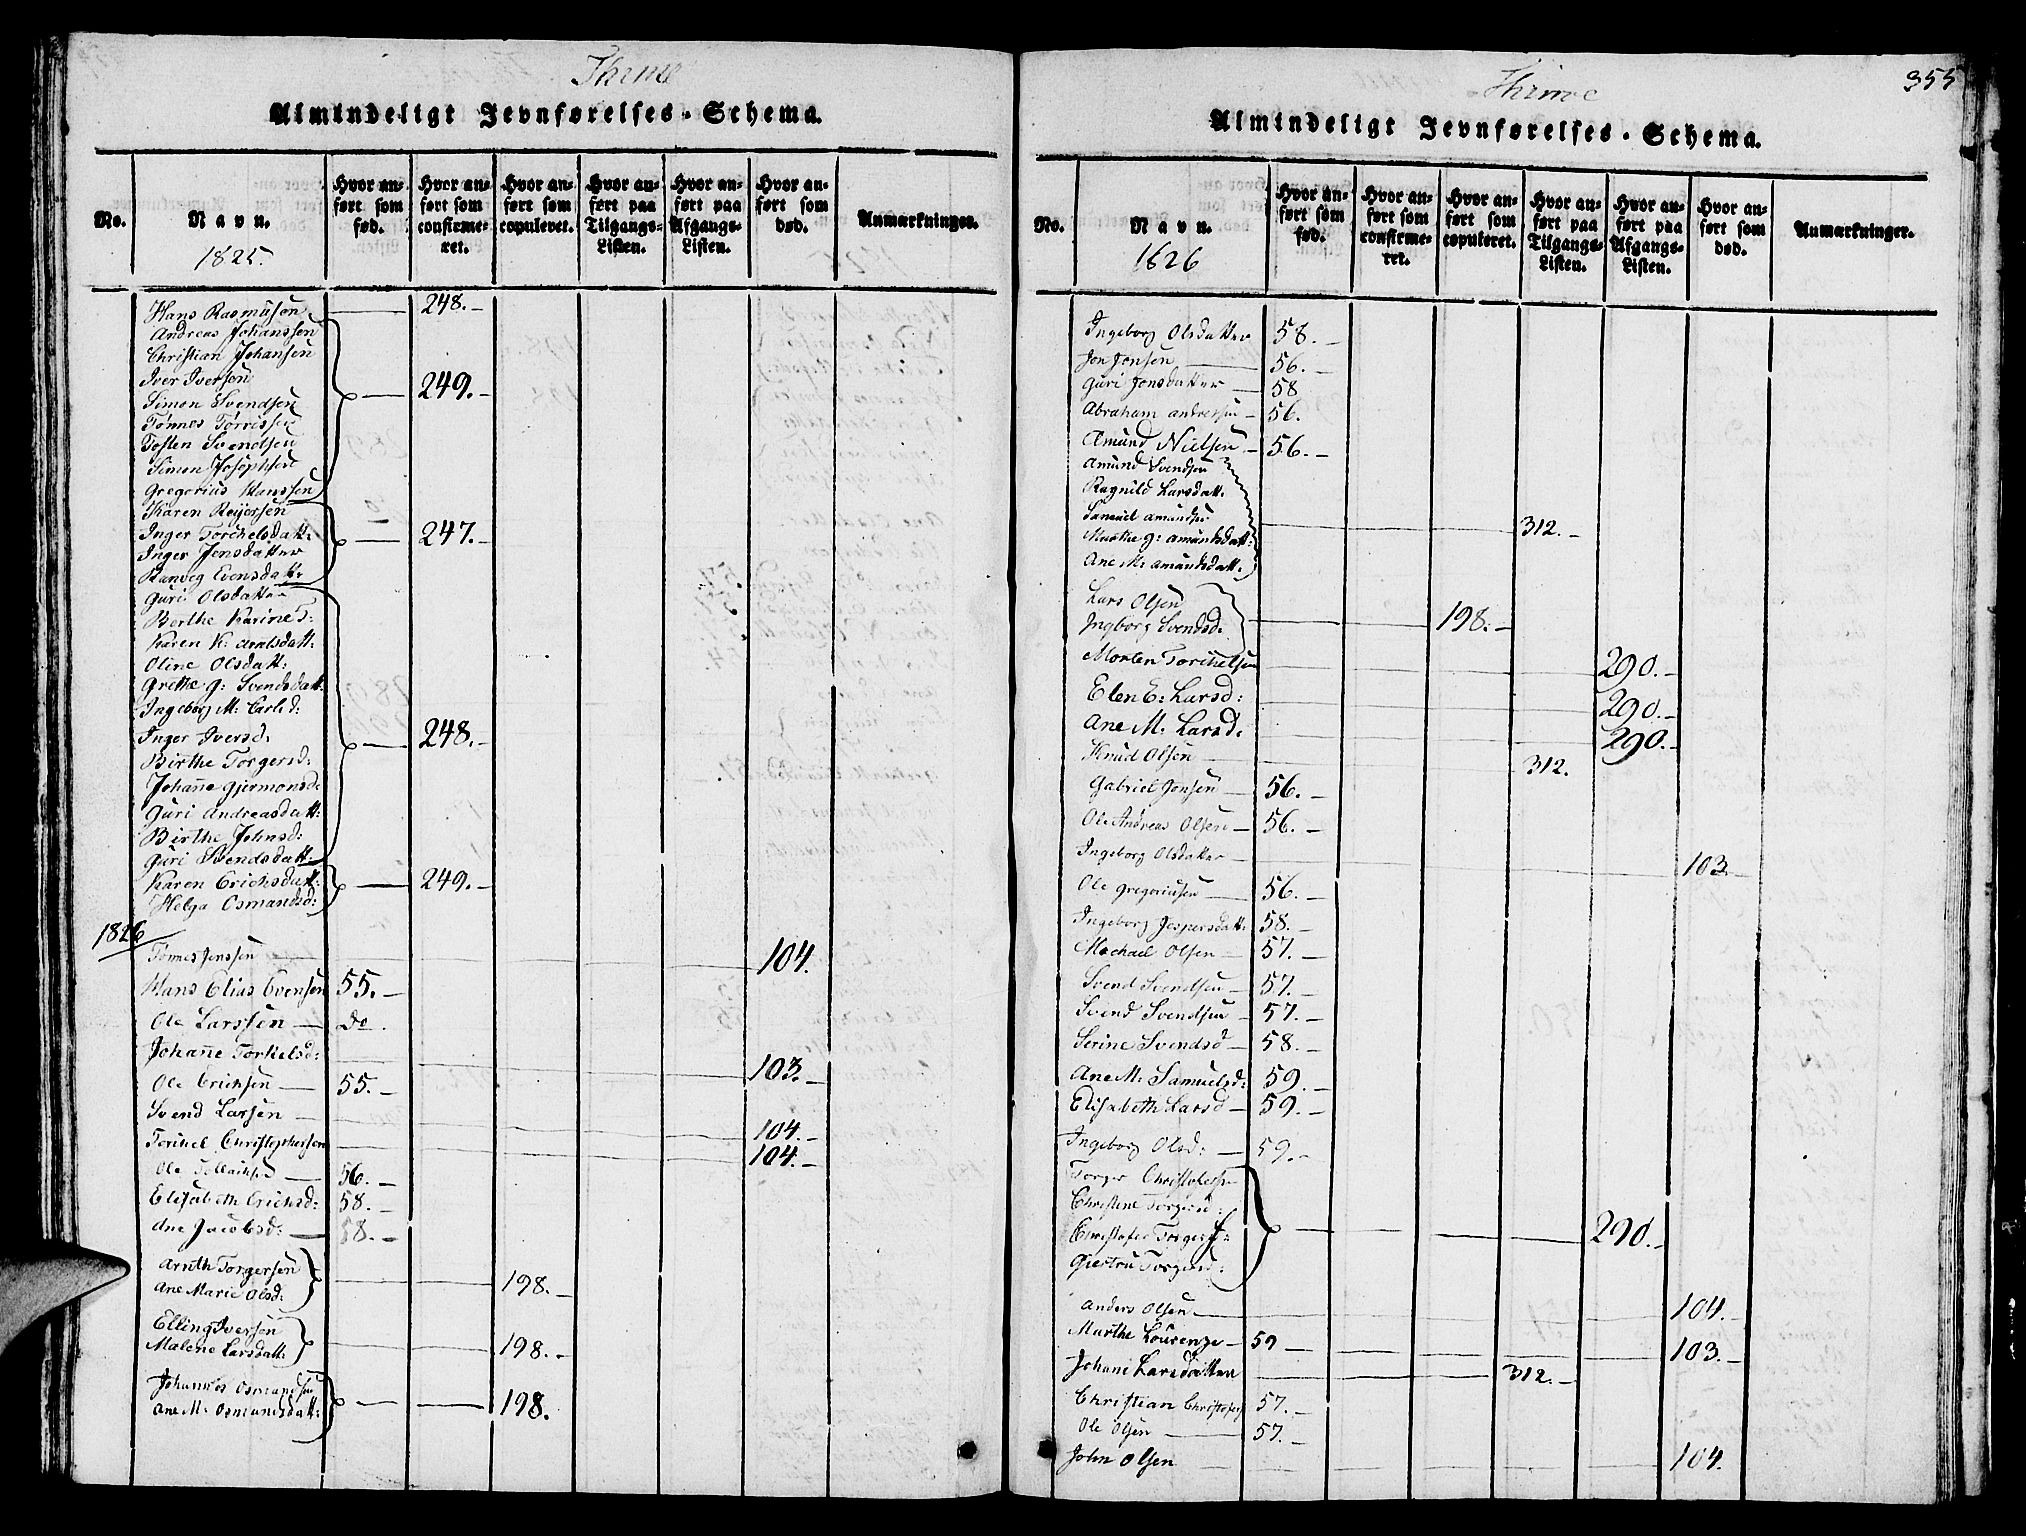 Thime
Almindeligt Jevnførelses-Schema.
No.
Navn.
1825.
Hvor anført som fød.
Hvor anført som confirmeret.
Hvor anført som copuleret.
Hvor anført paa Tilgangs-Listen.
Hvor anført paa Afgangs-Listen.
Hvor anført som død.
Anmærkninger.
Hans Rasmusen 248.
Andreas Johanssen
Christian Johansen
Iver Iversen 249.
Simon Svendsen
Tønnes Tørrissen
Tosten Svendsen
Simon Josephsen
Gregorius Hanssen
Karen Reijersen
Inger Torchelsdatt: 247.
Inger Jensdatter
Ranveg Evensdatt:
Guri Olsdatter
Berthe Karine T:
Karen K: Arntsdatt:
Oline Olsdatt:
Grethe G: Svendsdatt:
Ingeborg M: Carlsd:
Inger Iversd: 248.
Birthe Torgersd:
Johanne Gjermonsd:
Guri Andreasdatt:
Birthe Johnsd:
Guri Svendsdatt:
Karen Erichsdatt: 249.
Helga Osmandsd:
1826
Tønnes Jenssen 104.
Hans Elias Evensen 55.
Ole Larssen do.
Johanne Torkelsd: 103.
Ole Erichsen 55.
Svend Larsen 104.
Torchel Christophersen 104.
Ole 56.
Elisabeth Erichsd: 58.
Ane Jacobsd: 58.
Arnth Torgersen
Ane Marie Olsd: 198.
Elling Iversen
Malene Larsdatt: 198.
Johannes Osmundsen
Ane M: Osmundsdatt: 198.
Thime
355
Almindeligt Jevnførelses-Schema.
No.
Navn.
1826
Hvor anført som fød.
Hvor anført som confirmeret.
Hvor anført som copuleret.
Hvor anført paa Tilgangs-Listen.
Hvor anført paa Afgangs-Listen.
Hvor anført som død.
Anmærkninger.
Ingeborg Olsdatter 58.
Jon Jonsen 56.
Guri Jonsdatter 58
Abraham Andressen 56.
Amund Nielsen 56.
Amund Svendsen
Ragnild Larsdatt:
Samuel Amundsen 312.
Marthe G: Amundsdatt:
Ane M: Amundsdatt:
Lars Olsen
Ingborg Svendsd: 198.
Morten Torchelsen 290.
Elen E: Larsd: 290.
Ane M. Larsd: 290.
Knud Olsen 312.
Gabriel Jonsen 56.
Ole Andreas Olsen 56.
Ingeborg Olsdatter 103.
Ole Gregoriusen 56.
Ingeborg Jespersdatt: 58.
Michael Olsen 57.
Svend Svendsen 57.
Svend Svendsen 57.
Serine Svendsd 58.
Ane M: Samuelsd: 59.
Elisabeth Larsd 59.
Ingeborg Olsd: 59.
Torger Christofersen
Christene Torgersd:
Christofer Torgers: 290.
Giertru Torgersd:
Anders Olsen 104.
Marthe Lourenze 59 103.
Johane Larsdatter 312.
Christian Christofers 57.
Ole Olsen 57.
John Olsen 104.